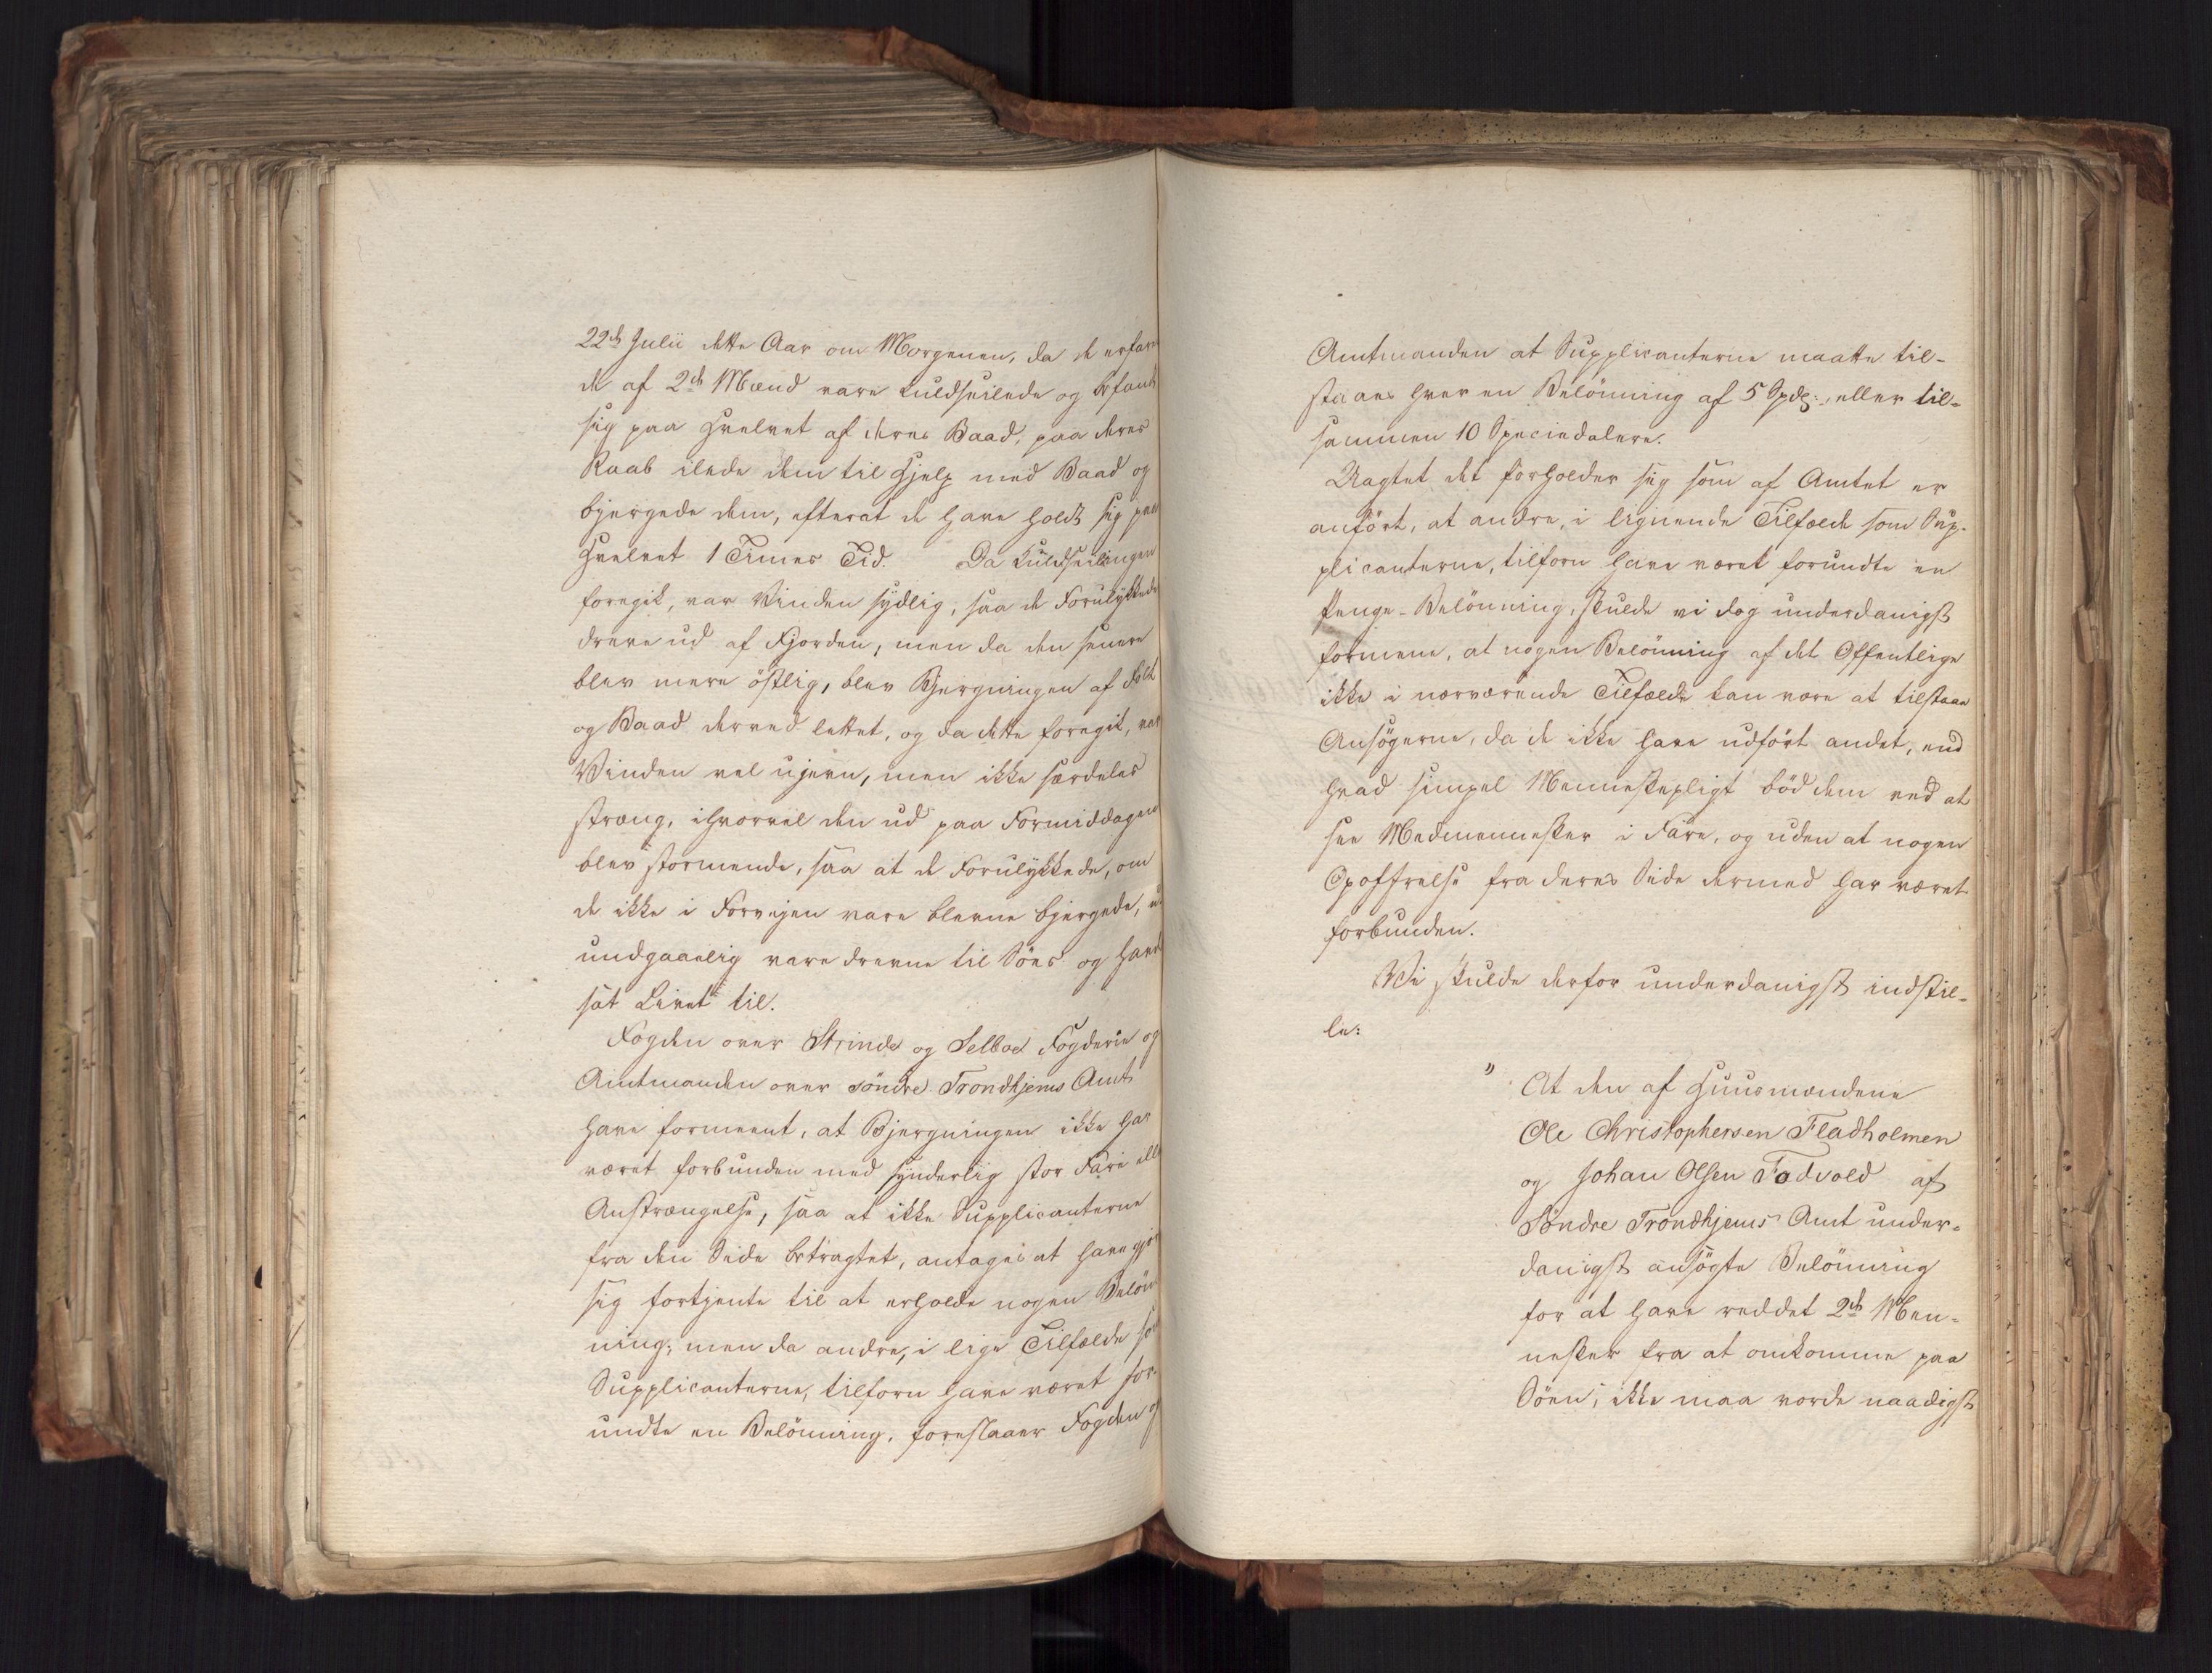 22de Julii dette Aar om Morgenen, da de erfare
de af 2de Mænd vare kuldseilede og befandt
sig paa Hvelvet af deres Baad, paa deres
Raab ilede dem til Hjelp med Baad og
bjergede dem, efterat de have holdt sig paa
Hvelvet 1 Times Tid. Da Kuldseilingen
foregik, var Vinden sydlig, saa de Forulykkede
dreve ud af Fjorden, men da den senere
blev mere östlig, blev Bjergningen af Folk
og Baad derved lettet, og da dette foregik, var
Vinden vel ujevn, men ikke særdeles
streng, ihvorvel den ud paa Formiddagen
blev stormende, saa at de Forulykkede, om
de ikke i Forvejen vare blevne bjergede, u
undgaaelig vare drevne til Söes og havd
sat Livet til.
Fogden over Strinde og Selboe Fogderie og
Amtmanden over söndre Trondhjems Amt
have formeent, at Bjergningen ikke har
været forbunden med synderlig stor Fare elle
Anstrængelse, saa at ikke Supplicanterne
fra den Side betragtet, antages at have gjor
sig fortjente til at erholde nogen Belön
ning; men da andre, i lige Tilfælde som
Supplicanterne, tilforn have været for-
undte en Belönning, foreslaaer Fogden og
Amtmanden at Supplicanterne maatte til-
staaes hver en Belönning af 5 Spdl:, eller til-
sammen 10 Speciedalere.
Uagtet det forholder sig som af Amtet er
anfört, at andre, i lignende Tilfælde som Sup-
plicanterne, tilforn have været forundte en
Penge-Belönning, skulde vi dog underdanigst
formene, at nogen Belönning af det Offentlige
ikke i nærværende Tilfælde kan være at tilstaae
Ansögerne, da de ikke have udfört andet, end
hvad simpel Menneskepligt böd dem ved at
see Medmennesker i Fare, og uden at nogen
Opoffrelse fra deres Side dermed har været
forbunden.
Vi skulde derfor underdanigst indstil-
le:
" At den af Huusmændene
Ole Christophersen Fladholmen
og Johan Olsen Fadvold af
Söndre Trondhjems Amt under-
danigst ansögte Belönning
for at have reddet 2de Men-
nesker fra at omkomme paa
Söen, ikke maa vorde naadigst